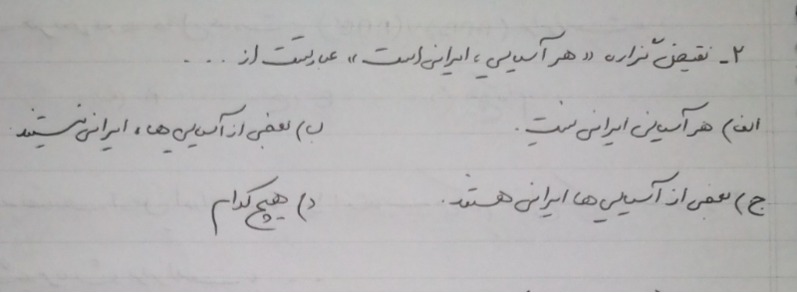 ۲- نقیض گزاره «هر آسیایی، ایرانی است» عبارتست از ....
الف) هر آسیایی ایرانی نیست. ب) بعضی از آسیایی ها، ایرانی نیستند
ج) بعضی از آسیایی ها ایرانی هستند. د) هیچ کدام